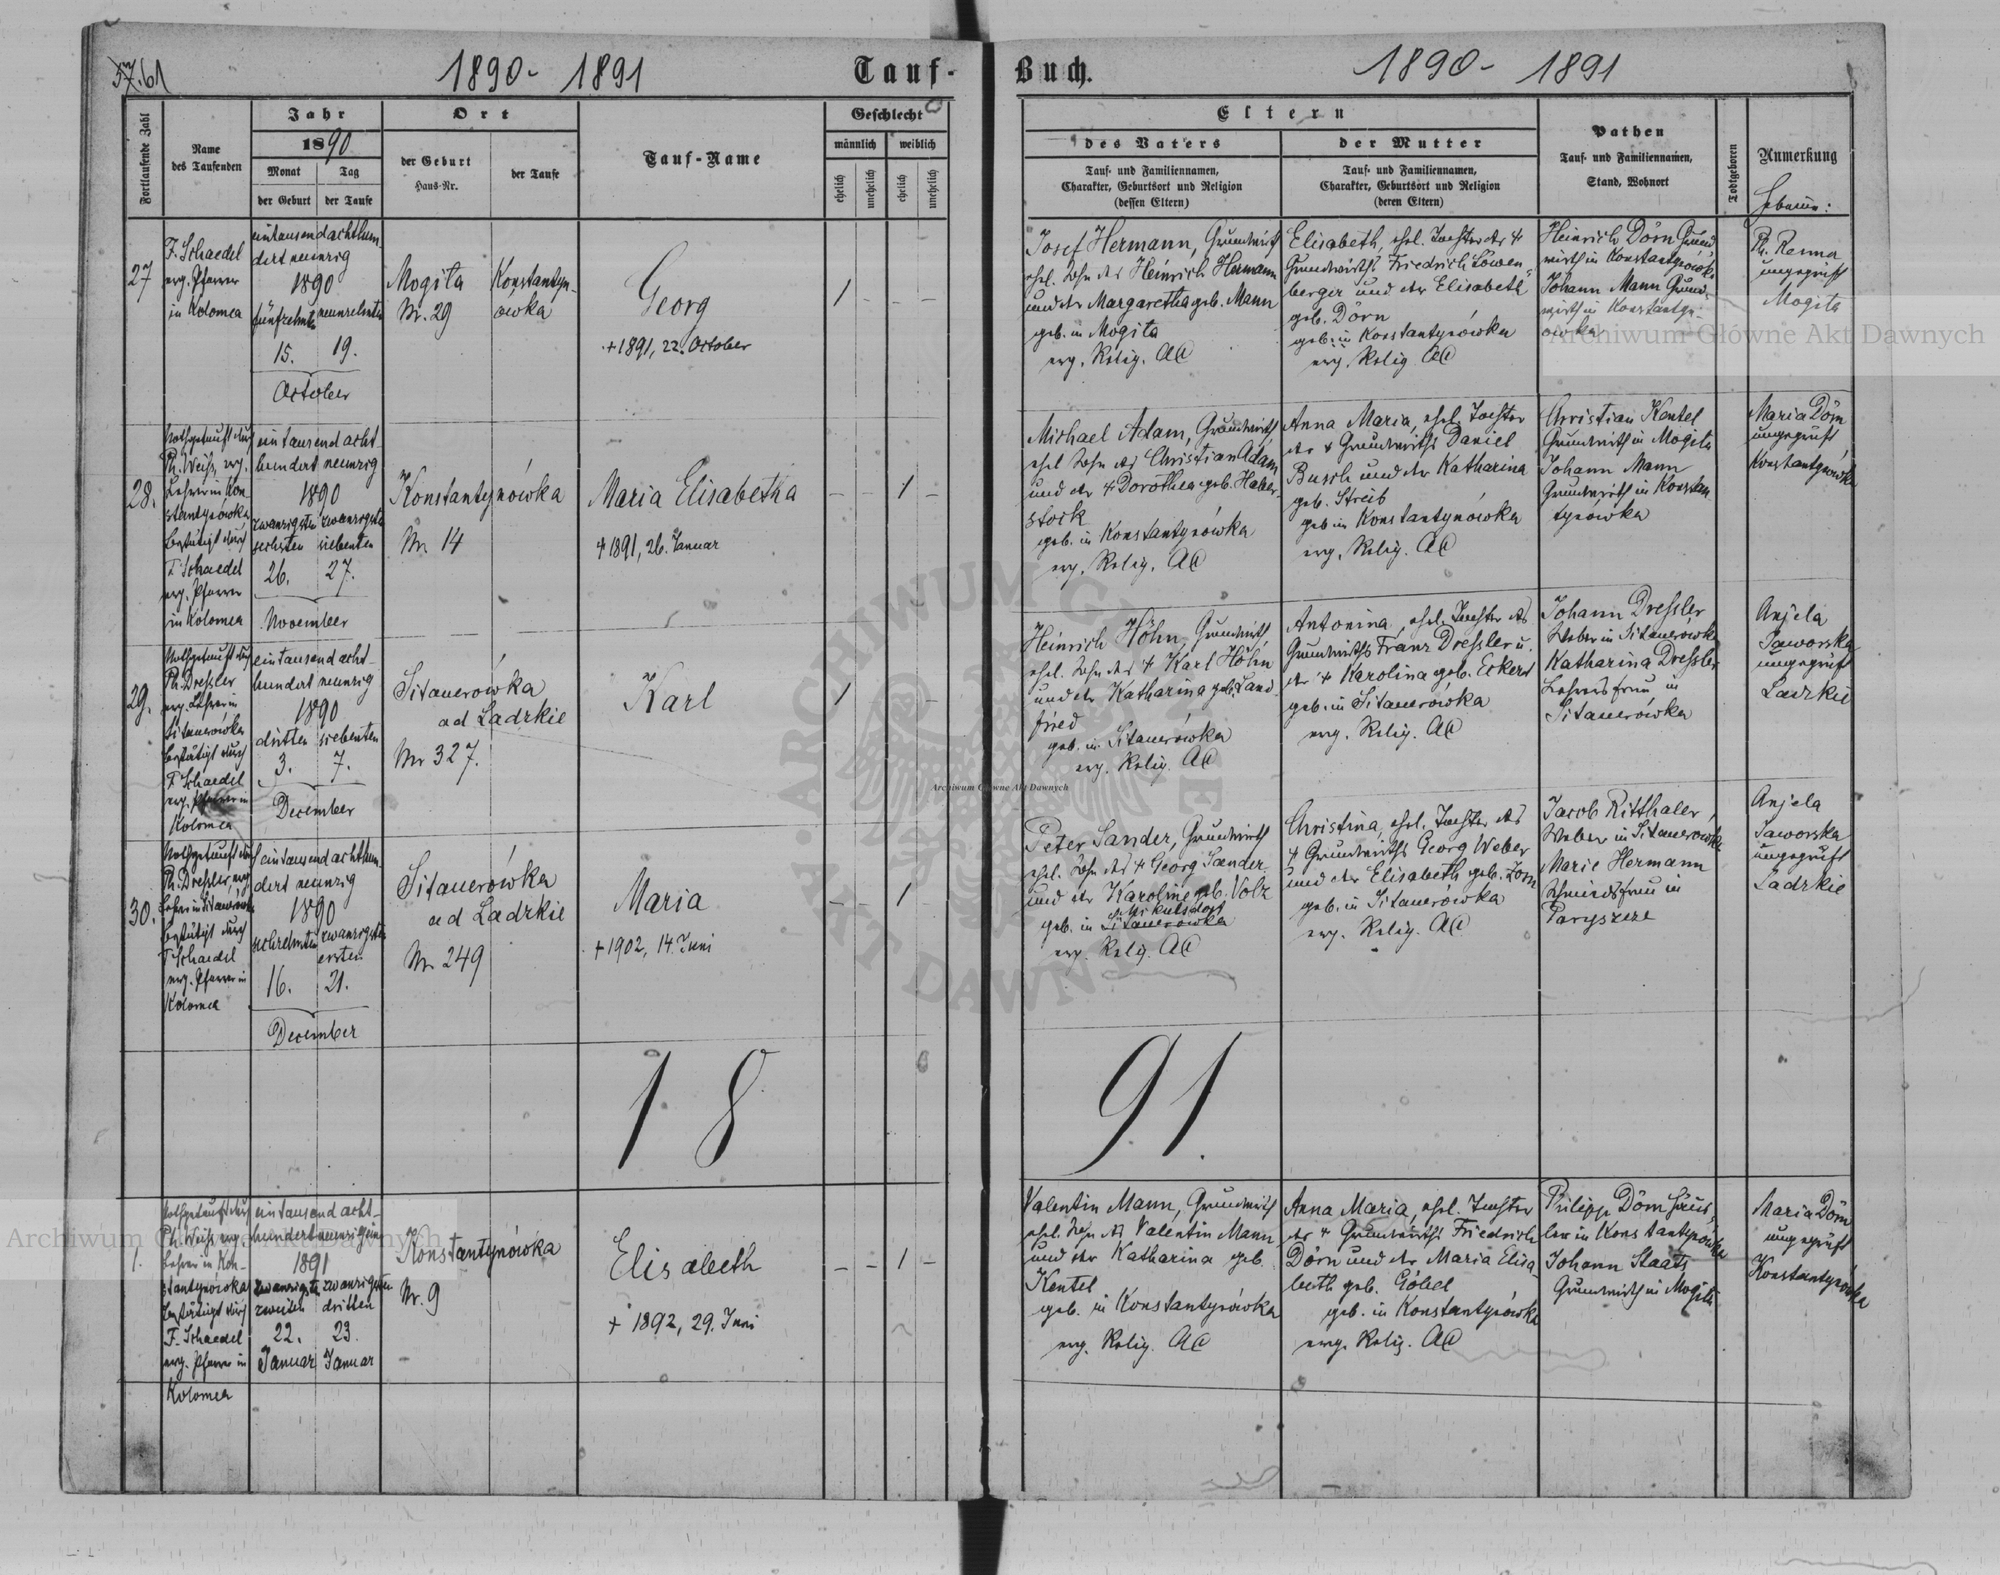 57.61
1890 - 1891
Tauf-
Buch.
1890 - 1891
Fortlaufende Zahl
Name
des Taufenden
Jahr
1890
Monat
Tag
der Geburt
der Taufe
Ort
der Geburt
Haus-Nr.
der Taufe
Tauf-Name
Geschlecht
männlich
weiblich
ehelich
unehelich
ehelich
unehelich
Eltern
des Vaters
Tauf- und Familiennamen,
Charakter, Geburtsort und Religion
(dessen Eltern)
der Mutter
Tauf- und Familiennamen,
Charakter, Geburtsort und Religion
(deren Eltern)
Pathen
Tauf- und Familiennamen,
Stand, Wohnort
Todtgeboren
Anmerkung
Hebamme:
27
F. Schaedel
evg. Pfarrer
in Kolomea
eintausendachthun-
dert neunzig
1890
fünfzehnten
neunzehnten
15.
19.
October
Mogiła
Nr. 29
Konstantyn-
ówka
Georg
+ 1891, 22. October
1
– –
Josef Hermann, Grundwirth
ehel. Sohn des Heinrich Hermann
und der Margaretha geb. Mann
geb. in Mogiła
evg. Relig. AC
Elisabeth, ehel. Tochter des +
Grundwirths Friedrich Löwen-
berger und der Elisabeth
geb. Dörn
geb. in Konstantynówka
evg. Relig. AC
Heinrich Dörn Grund-
wirth in Konstantynówka
Johann Mann Grund-
wirth in Konstantyn-
ówka
Ph. Renna
ungeprüft
Mogiła
28.
Nothgetauft durch
Ph. Weiss, evg.
Lehrer in Kon-
stantynówka
bestätigt durch
F. Schaedel
evg. Pfarrer
in Kolomea
eintausend acht-
hundert neunzig
1890
zwanzigsten
zwanzigsten
sechsten
siebenten
26.
27.
November
Konstantynówka
Nr. 14
Maria Elisabetha
+ 1891, 26. Januar
– – 1 –
Michael Adam, Grundwirth
ehel. Sohn des Christian Adam
und der + Dorothea geb. Haber-
stock
geb. in Konstantynówka
evg. Relig. AC
Anna Maria, ehel. Tochter
des + Grundwirths Daniel
Busch und der Katharina
geb. Streib
geb. in Konstantynówka
evg. Relig. AC
Christian Kentel
Grundwirth in Mogiła
Johann Mann
Grundwirth in Konstan-
tynówka
Maria Dörn
ungeprüft
Konstantynówka
29.
Nothgetauft durch
Ph. Dressler
evg. Lehrer in
Sitauerówka
bestätigt durch
F. Schaedel
evg. Pfarrer in
Kolomea
eintausend acht-
hundert neunzig
1890
dritten
siebenten
3.
7.
December
Sitauerówka
ad Ladzkie
Nr. 327.
Karl
1
–
Heinrich Höhn, Grundwirth
ehel. Sohn des + Karl Höhn
und der Katharina geb. Land-
fried
geb. in Sitauerówka
evg. Relig. AC
Antonina, ehel. Tochter des
Grundwirths Franz Dressler u.
der + Karolina geb. Eckert
geb. in Sitauerówka
evg. Relig. AC
Johann Dressler
Weber in Sitauerówka
Katharina Dressler
Lehrersfrau in
Sitauerówka
Anjela
Jaworska
ungeprüft
Ladzkie
30.
Nothgetauft durch
Ph. Dressler, evg.
Lehrer in Sitauerówka
bestätigt durch
F. Schaedel
evg. Pfarrer in
Kolomea
eintausend achthun-
dert neunzig
1890
sechzehnten
zwanzigsten
ersten
16.
21.
December
Sitauerówka
ad Ladzkie
Nr. 249
Maria
+ 1902, 14. Juni
– – 1
Peter Sander, Grundwirth
ehel. Sohn des + Georg Sander
und der Karoline geb. Volz
Mikulsdorf
geb. in Sitauerówka
evg. Relig. AC
Christina, ehel. Tochter des
+ Grundwirths Georg Weber
und der Elisabeth geb. Zorn
geb. in Sitauerówka
evg. Relig. AC
Jacob Ritthaler
Weber in Sitauerówka
Marie Hermann
Schmiedsfrau in
Paryszcze
Anjela
Jaworska
ungeprüft
Ladzkie
18
91.
1.
Nothgetauft durch
Ph. Weiss, evg.
Lehrer in Kon-
stantynówka
bestätigt durch
F. Schaedel
evg. Pfarrer in
Kolomea
eintausend acht-
hundert neunzig eins
1891
zwanzigsten
zwanzigsten
zweiten
dritten
22.
23.
Januar
Januar
Konstantynówka
Nr. 9
Elisabeth
+ 1892, 29. Juni
– – 1 –
Valentin Mann, Grundwirth
ehel. Sohn des Valentin Mann
und der Katharina geb.
Kentel
geb. in Konstantynówka
evg. Relig. AC
Anna Maria, ehel. Tochter
des + Grundwirths Friedrich
Dörn und der Maria Elisa-
beth geb. Göbel
geb. in Konstantynówka
evg. Relig. AC
Philipp Dörn Häus-
ler in Konstantynówka
Johann Staats
Grundwirth in Mogiła
Maria Dörn
ungeprüft
Konstantynówka
Archiwum Główne Akt Dawnych
Archiwum Główne Akt Dawnych
Archiwum Główne Akt Dawnych